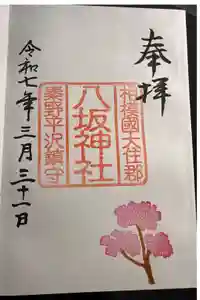 奉拝
相模國大住郡
八坂神社
秦野平沢鎮守
令和七年三月三十一日